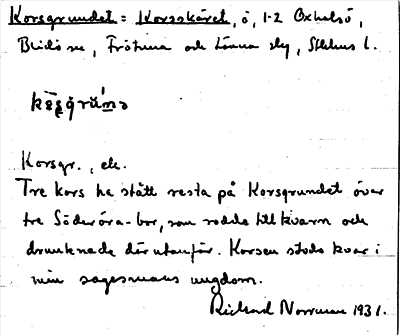 Korsgrundet = Korsskäret, ö, 1-2 Oxhalsö,
Blidö sn, Frötuna och Länna slg, Sthlms l.
Korsgr., ek.
Tre kors ha stått resta på Korsgrundet över
tre Söderöra-bor, som rodde till kvarn och
drunknade där utanför. Korsen stodo kvar i
min sagesmans ungdom.
Richard Norrman 1931.